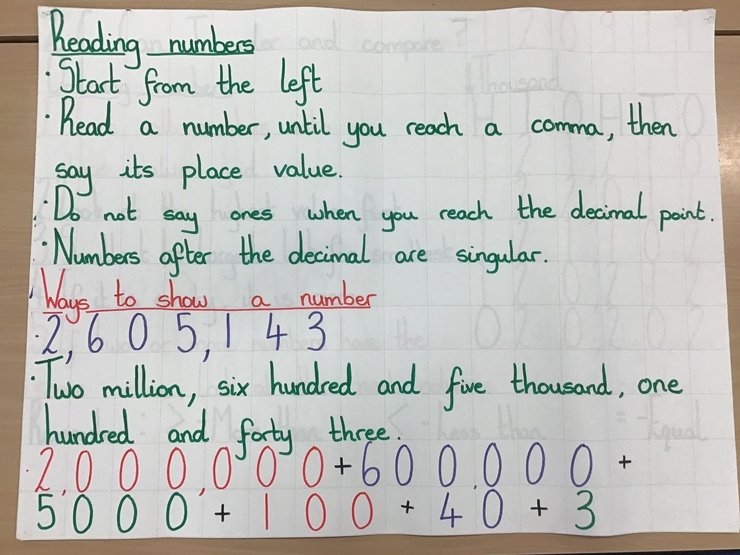 Reading numbers
· Start from the left
· Read a number, until you reach a comma, then
say its place value.
· Do not say ones when you reach the decimal point.
· Numbers after the decimal are singular.
Ways to show a number
· 2,605,143
· Two million, six hundred and five thousand, one
hundred and forty three.
· 2,000,000 + 600,000 +
5000 + 100 + 40 + 3